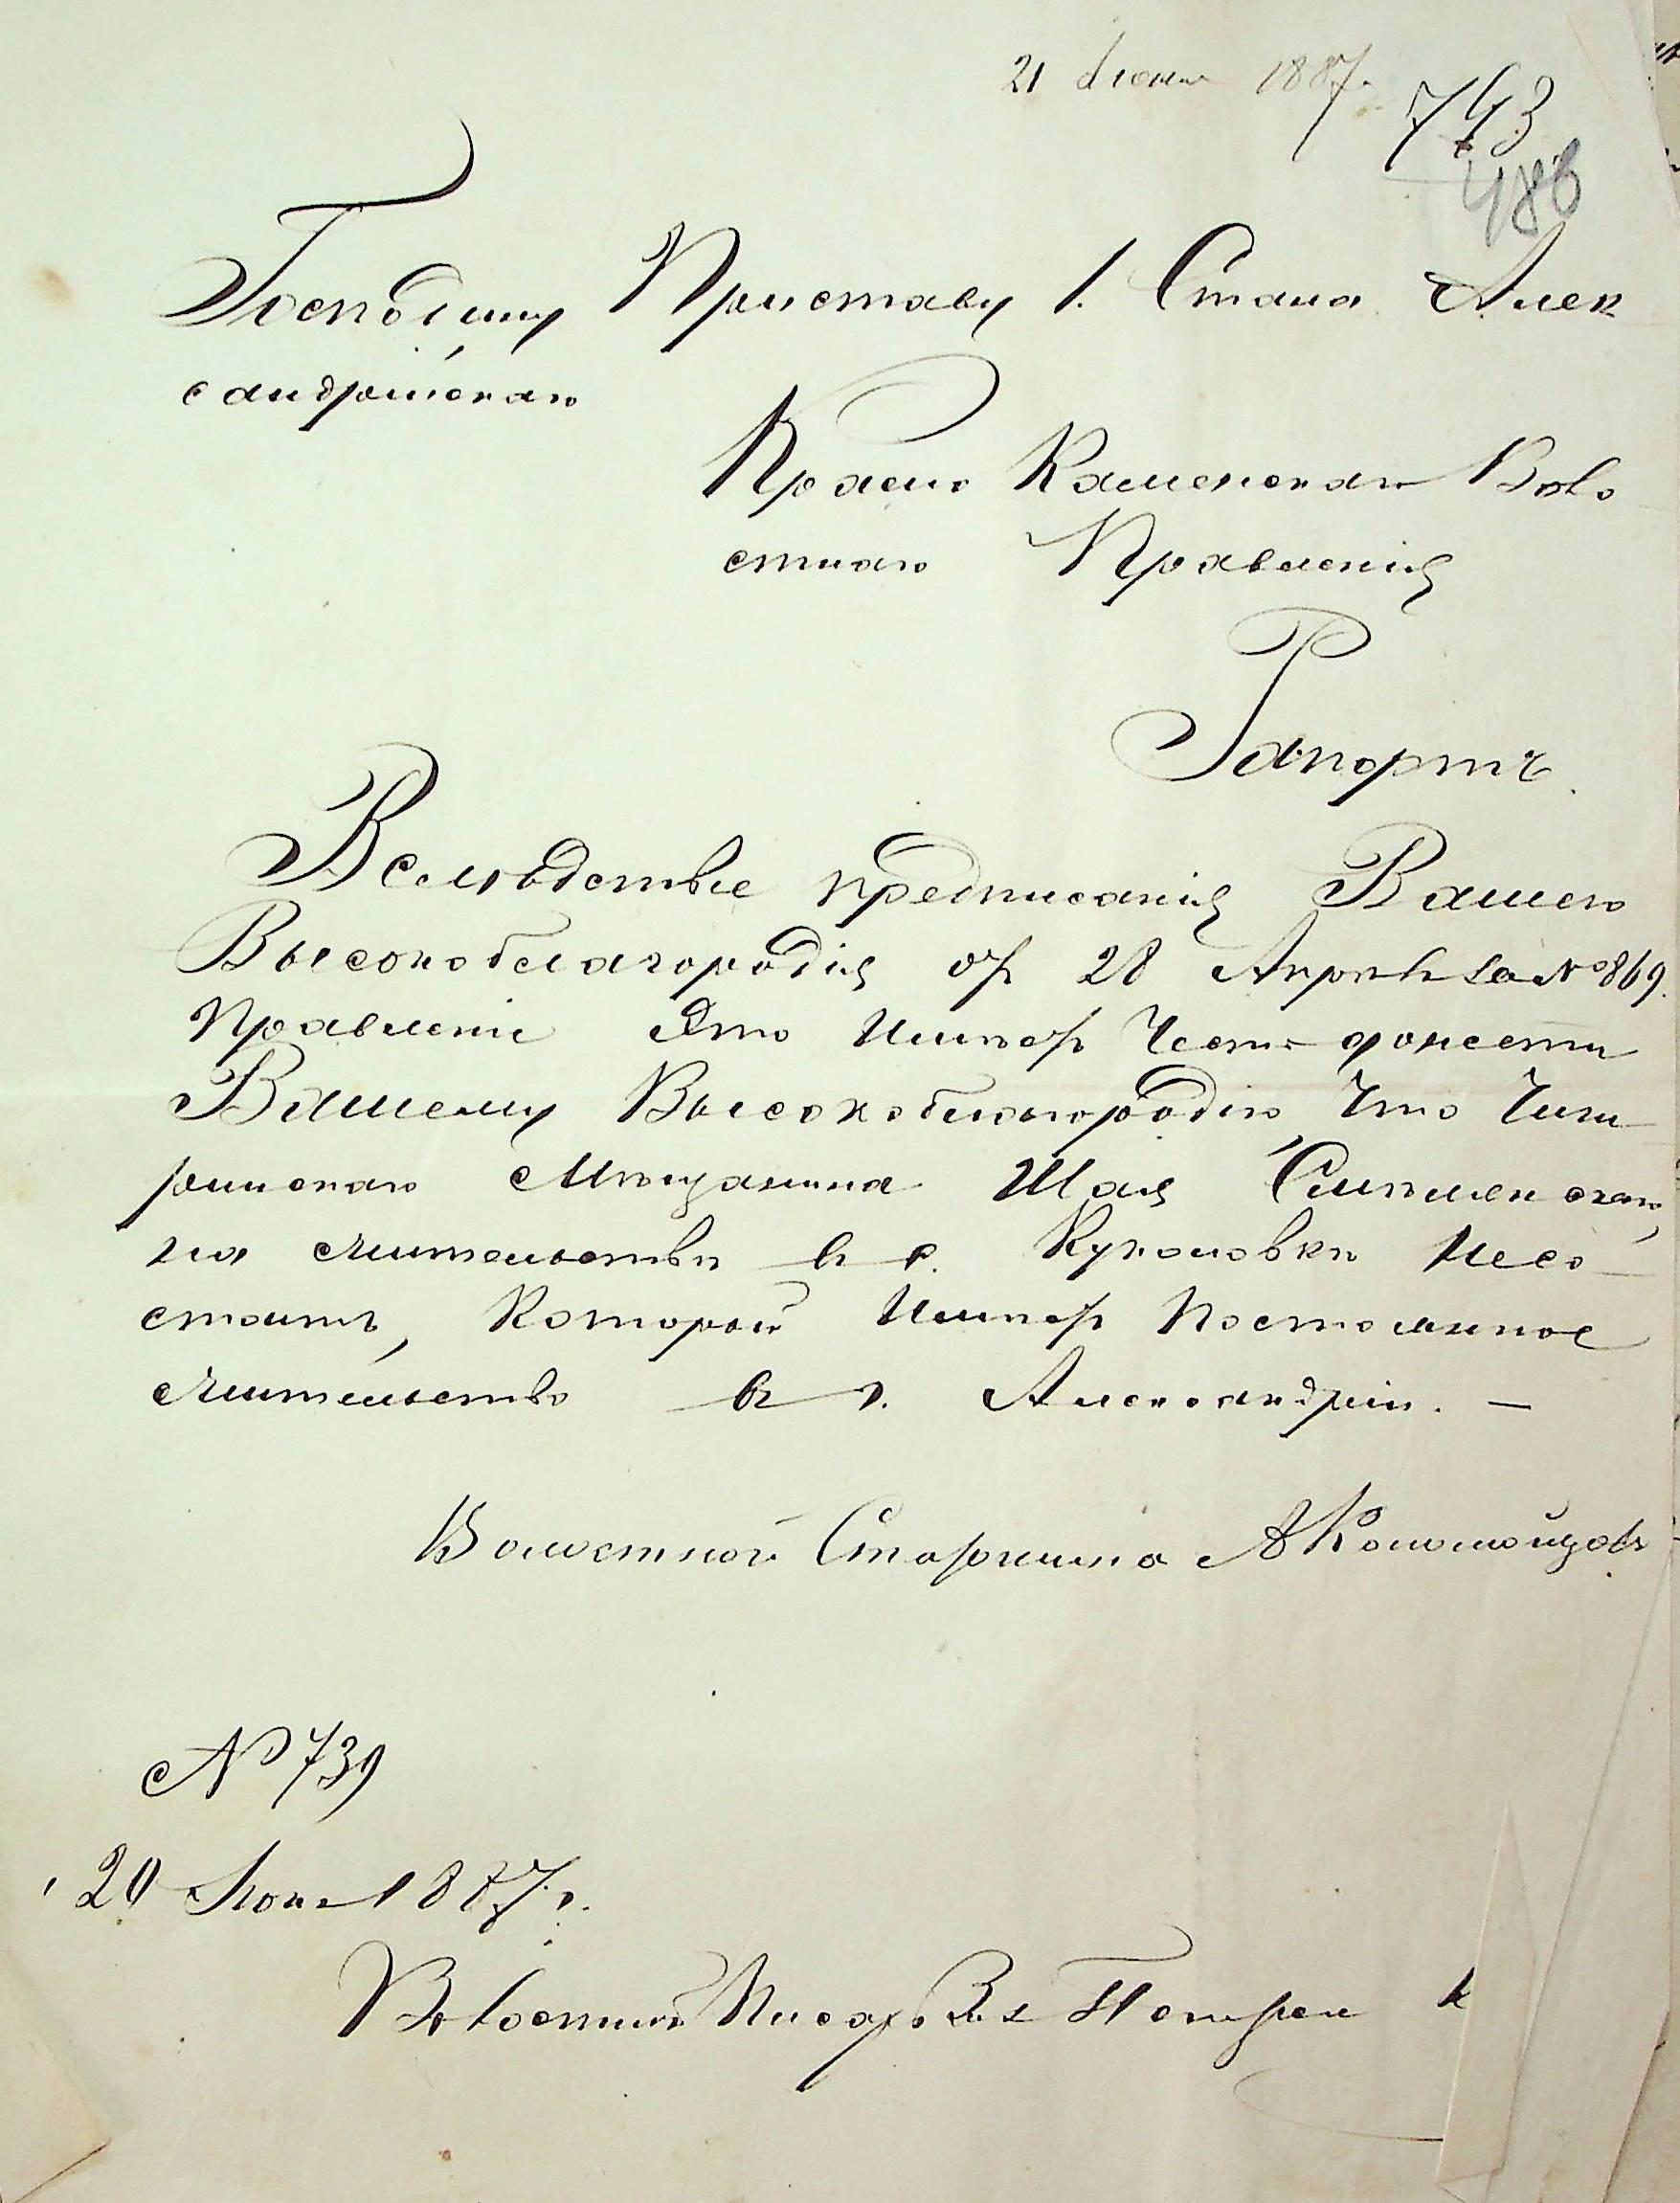 21 Іюня 1887.
743
486
Господину Приставу 1. Стана Алек
сандрійскаго
Красно Каменскаго Воло
стнаго Правленія
Рапортъ.
Вслѣдствіе предписанія Вашего
Высокоблагородія отъ 28 Апрѣля № 869.
Правленіе Это Имѣетъ Честь донести
Вашему Высокоблагородію Что Чиги
ринскаго Мѣщанина Шая
на жительствѣ въ с. Куколовкѣ Несо
стоитъ, Которой Имѣетъ Постоянное
жительство въ г. Александріи. —
Волостной Старшина А Коломойцовъ
№ 739
20 Іюня 1887 г.
Волостный Писарь